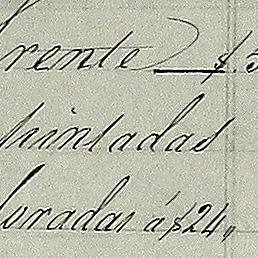 frente $.5
pintadas
doradas á $24,,